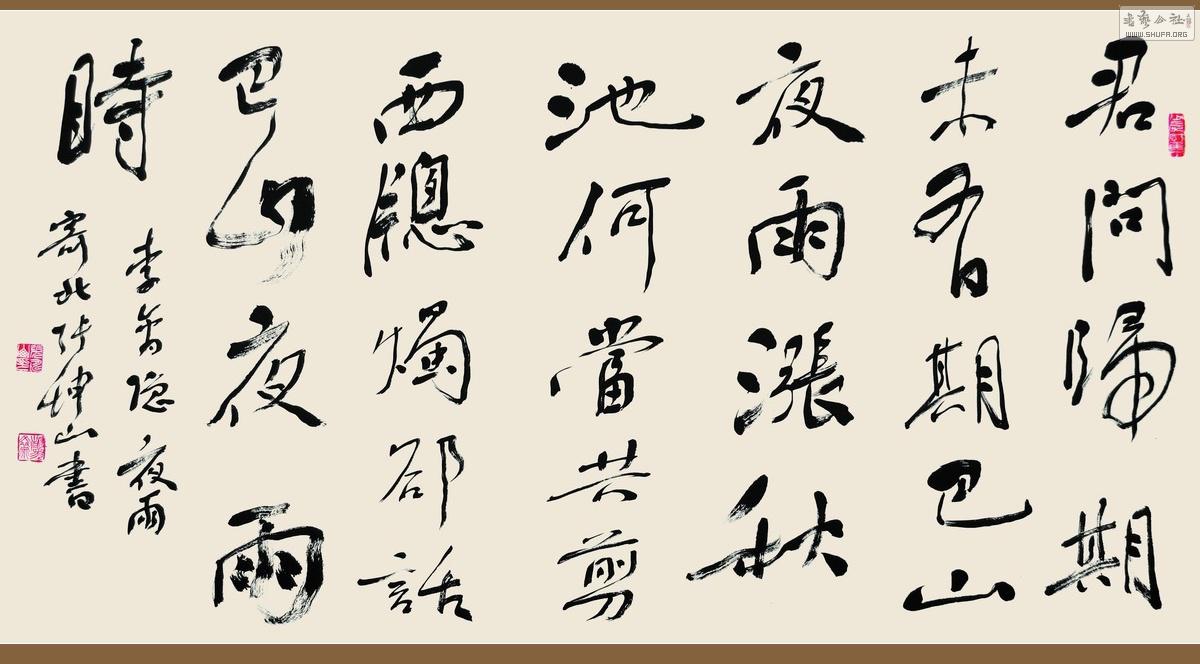 君問歸期
未有期巴山
夜雨漲秋
池何當共剪
西牕燭郤話
巴山夜雨
時
李商隐夜雨
寄北张坤山書
书艺公社
WWW.SHUFA.ORG